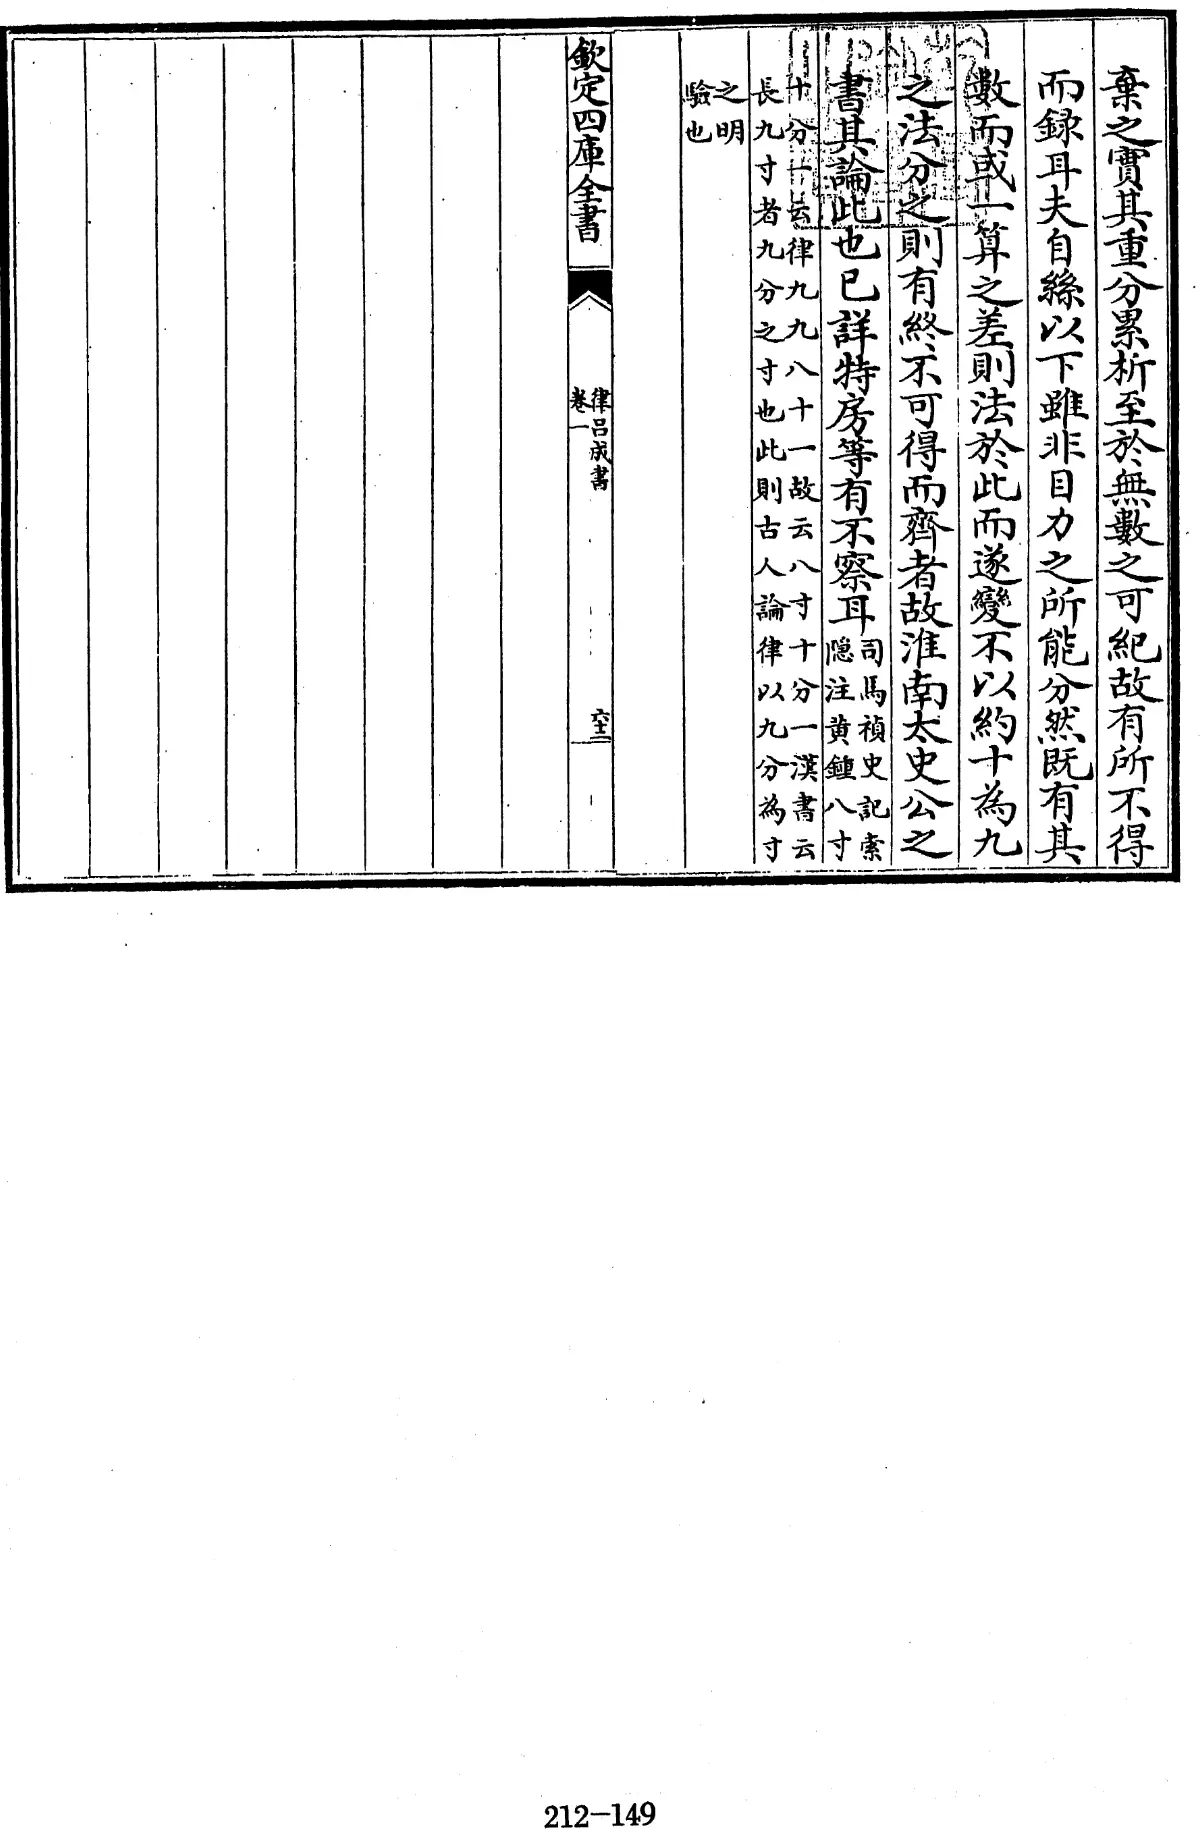 棄之實其重分累析至於無數之可紀故有所不得
而録耳夫自絲以下雖非目力之所能分然既有其
數而或一算之差則法於此而遂變不以約十為九
之法分之則有終不可得而齊者故淮南太史公之
書其論此也已詳特房等有不察耳司馬禎史記索
隠注黄鍾八寸
十分一云律九九八十一故云八寸十分一漢書云
長九寸者九分之寸也此則古人論律以九分為寸
之明
驗也
欽定四庫全書
律呂成書
卷一
212-149